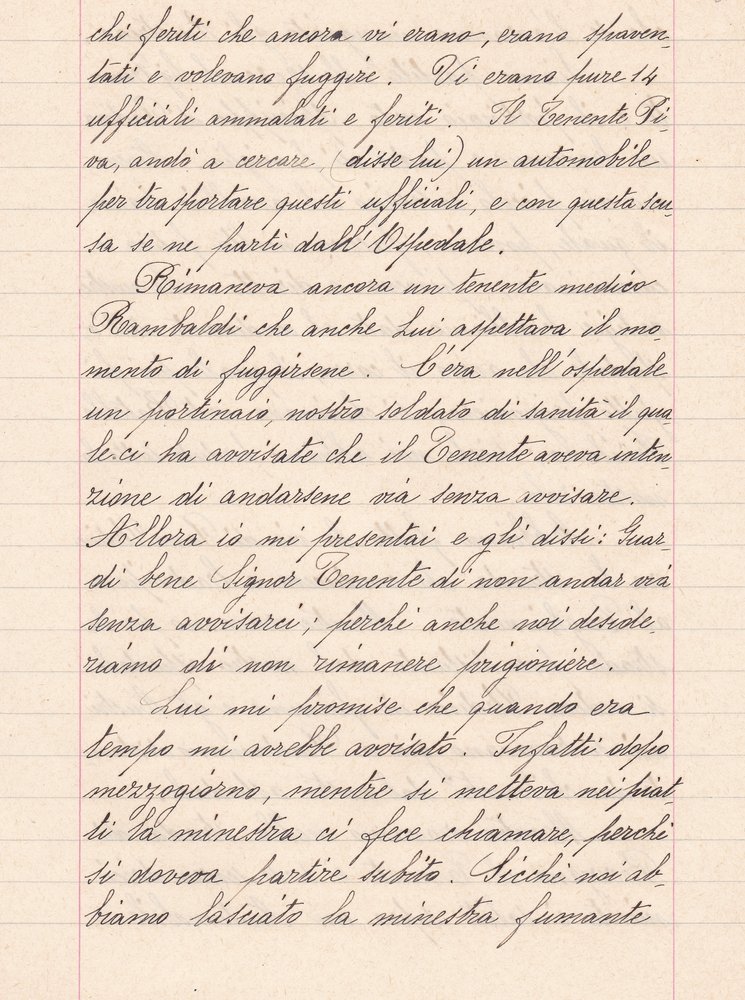 chi feriti che ancora vi erano, erano spaven-
tati e volevano fuggire. Vi erano pure 14
ufficiali ammalati e feriti. Il Tenente Pi-
va, andò a cercare, (disse lui) un automobile
per trasportare questi ufficiali, e con questa scu-
sa se ne partì dall'Ospedale.
Rimaneva ancora un tenente medico
Rambaldi che anche Lui aspettava il mo-
mento di fuggirsene. C'era nell'ospedale
un portinaio, nostro soldato di sanità il qua-
le ci ha avvisate che il Tenente aveva inten-
zione di andarsene via senza avvisare.
Allora io mi presentai e gli dissi: Guar-
di bene Signor Tenente di non andar via
senza avvisarci; perchè anche noi deside-
riamo di non rimanere prigioniere.
Lui mi promise che quando era
tempo mi avrebbe avvisato. Infatti dopo
mezzogiorno, mentre si metteva nei piat-
ti la minestra ci fece chiamare, perchè
si doveva partire subito. Sicchè noi ab-
biamo lasciato la minestra fumante